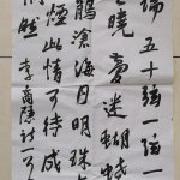 端五十弦一弦一
曉夢迷蝴蝶
鵑滄海月明珠
煙此情可待成
惘然李商隱詩一